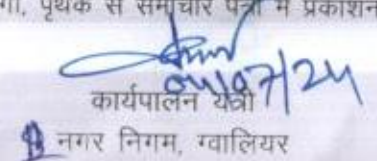 गा, पृथक से समाचार पत्रों में प्रकाशन
04/07/24
कार्यपालन यंत्री
नगर निगम, ग्वालियर